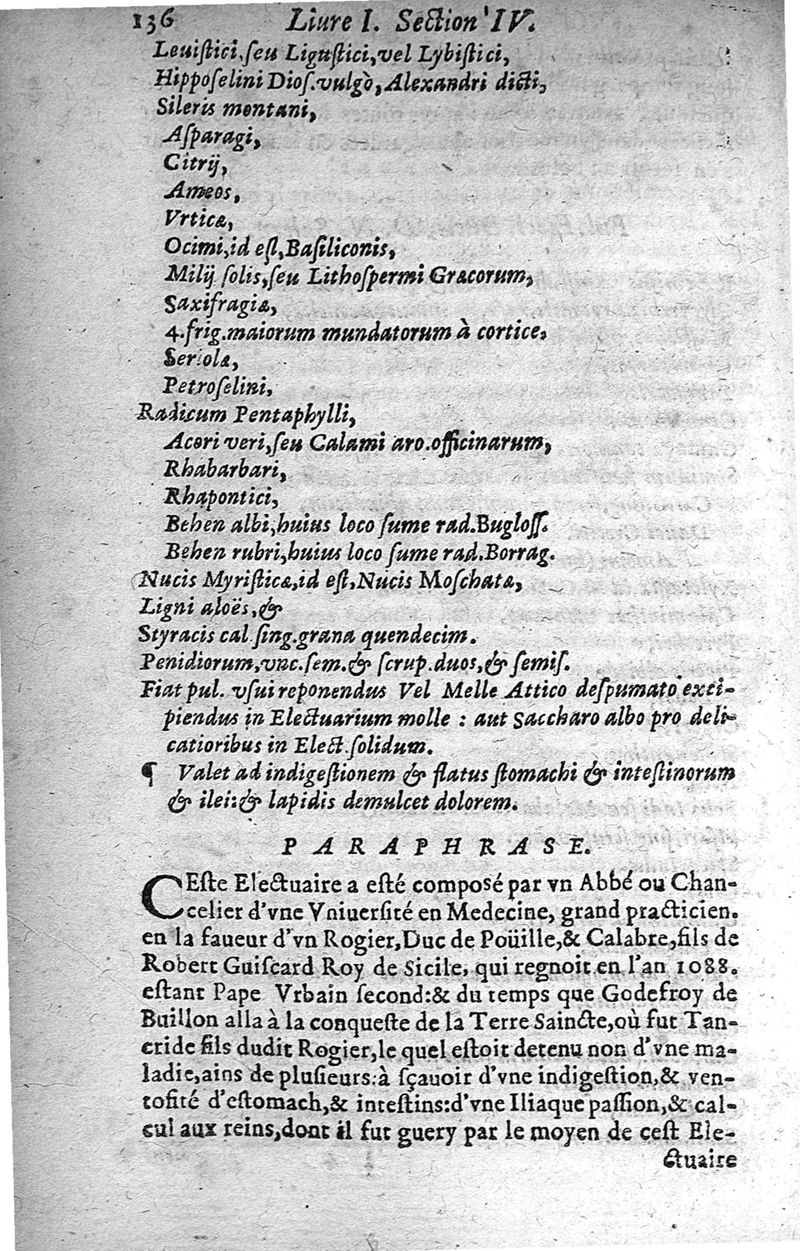 136 Liure I. Section IV.
Leuiſtici, ſeu Liguſtici, vel Lybiſtici,
Hippoſelini Dioſ. vulgò, Alexandri dicti,
Sileris montani,
Aſparagi,
Citrij,
Ameos,
Vrticæ,
Ocimi, id eſt, Baſiliconis,
Milij ſolis, ſeu Lithoſpermi Græcorum,
Saxifragiæ,
4. frig. maiorum mundatorum à cortice,
Seriolæ,
Petroſelini,
Radicum Pentaphylli,
Acori veri, ſeu Calami aro. officinarum,
Rhabarbari,
Rhapontici,
Behen albi, huius loco ſume rad. Bugloſſ.
Behen rubri, huius loco ſume rad. Borrag.
Nucis Myriſticæ, id eſt, Nucis Moſchatæ,
Ligni aloës, &
Styracis cal. ſing. grana quendecim.
Penidiorum, vnc. ſem. & ſcrup. duos, & ſemiſ.
Fiat pul. vſui reponendus Vel Melle Attico deſpumato exci-
piendus in Electuarium molle : aut Saccharo albo pro deli-
catioribus in Elect. ſolidum.
¶ Valet ad indigeſtionem & flatus ſtomachi & inteſtinorum
& ilei: & lapidis demulcet dolorem.
PARAPHRASE.
CEſte Electuaire a eſté compoſé par vn Abbé ou Chan-
celier d'vne Vniuerſité en Medecine, grand practicien.
en la faueur d'vn Rogier, Duc de Poüille, & Calabre, fils de
Robert Guiſcard Roy de Sicile, qui regnoit en l'an 1088.
eſtant Pape Vrbain ſecond: & du temps que Godefroy de
Buillon alla à la conqueſte de la Terre Saincte, où fut Tan-
cride fils dudit Rogier, le quel eſtoit detenu non d'vne ma-
ladie, ains de pluſieurs: à ſçauoir d'vne indigeſtion, & ven-
toſité d'eſtomach, & inteſtins: d'vne Iliaque paſſion, & cal-
cul aux reins, dont il fut guery par le moyen de ceſt Ele-
ctuaire